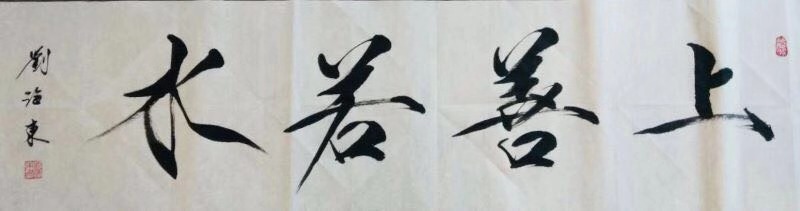 上善若水
劉海東